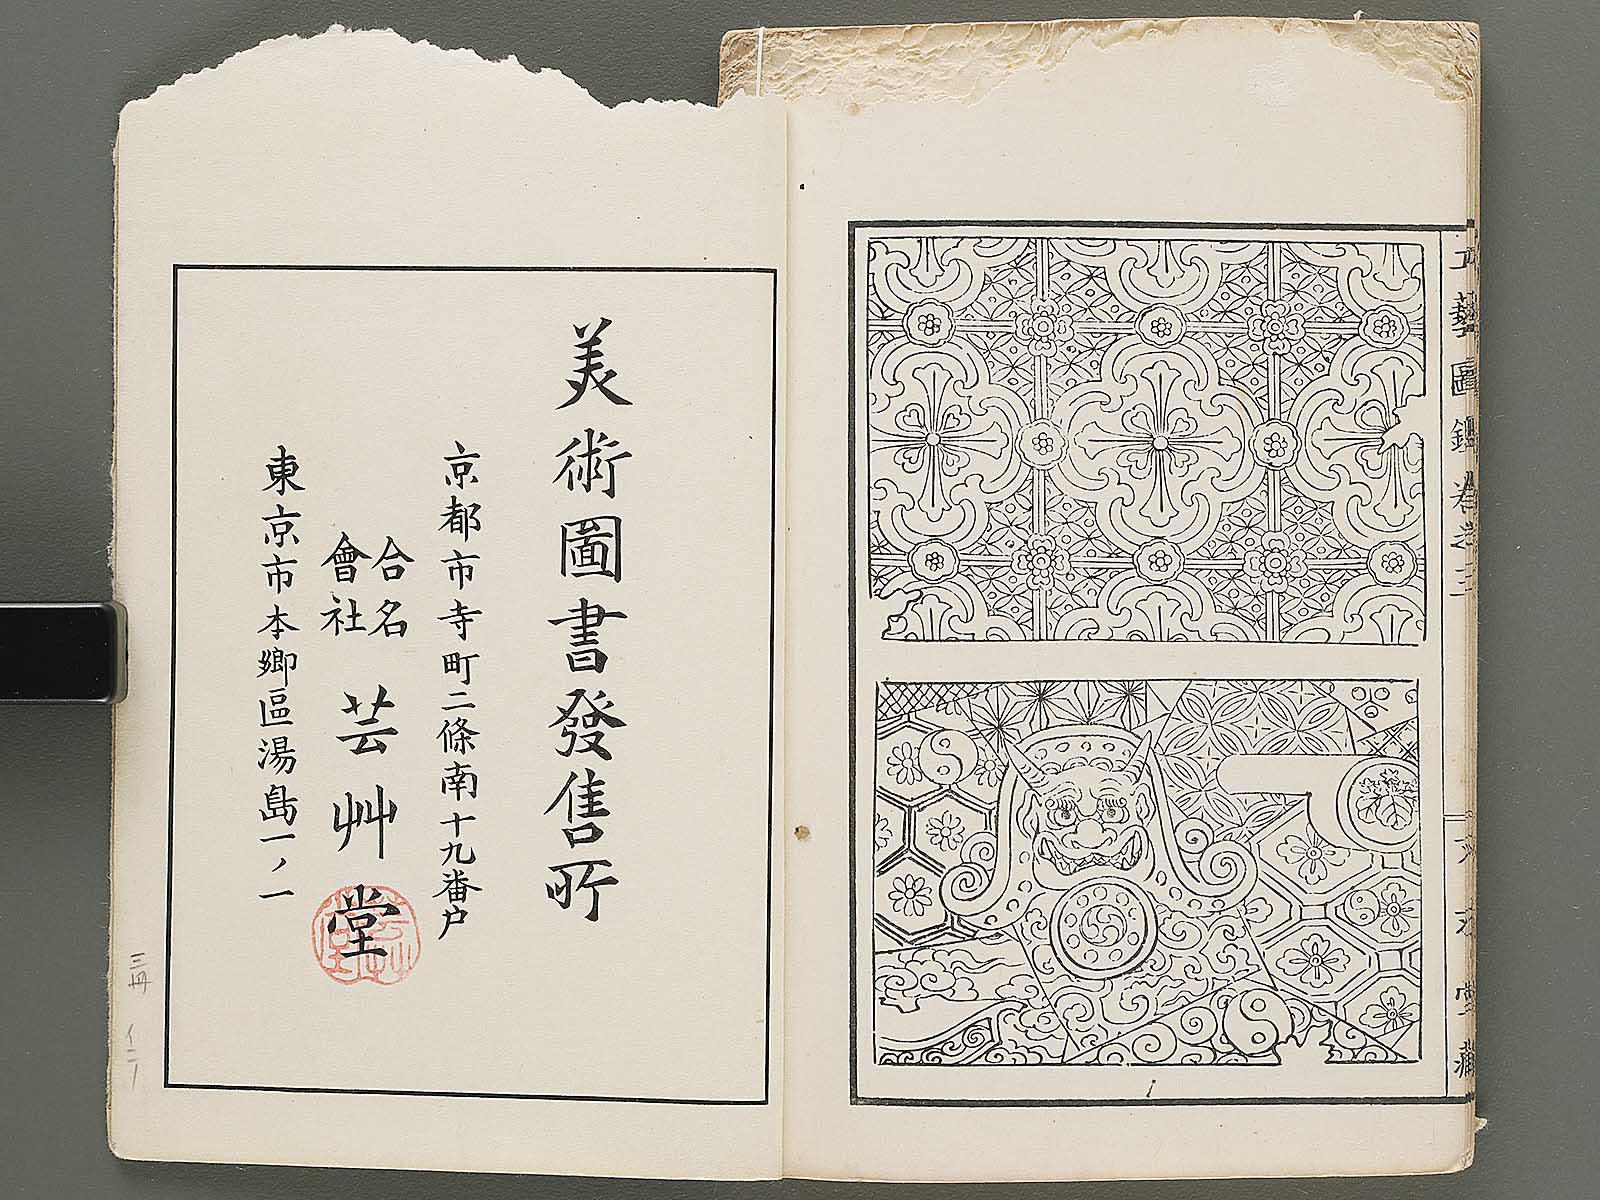 工藝圖鑑卷之三
堂藏
美術圖書發售所
京都市寺町二條南十九番户
合名
會社
芸艸堂
東京市本郷區湯島一ノ一
三冊